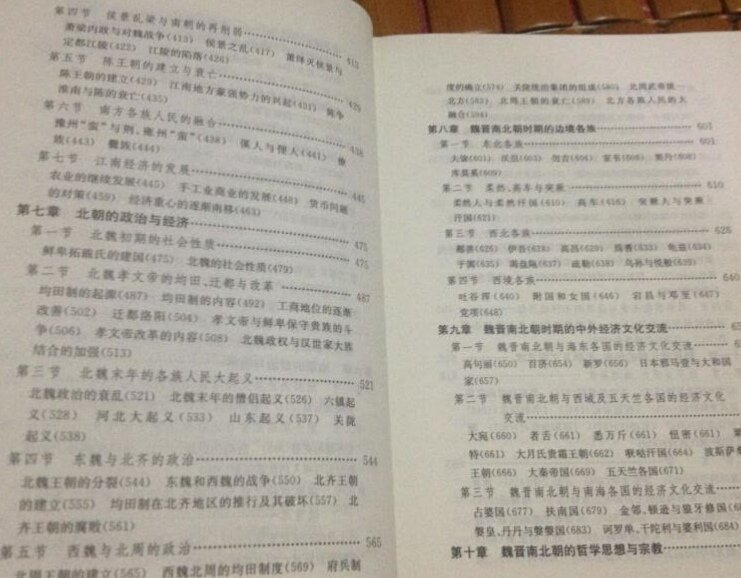 第四节 侯景乱梁与南朝的再削弱 413
萧梁内政与对魏战争(413) 侯景之乱(417) 萧绎灭侯景与
定都江陵(422) 江陵的陷落(426)
第五节 陈王朝的建立与衰亡 429
陈王朝的建立(429) 江南地方豪强势力的兴起(431) 陈争
淮南与陈的衰亡(435)
第六节 南方各族人民的融合 438
豫州“蛮”与荆、雍州“蛮”(438) 傒人与俚人(441) 僚
族(443) 爨族(444)
第七节 江南经济的发展 445
农业的继续发展(445) 手工业商业的发展(448) 货币问题
的对策(459) 经济重心的逐渐南移(463)
第七章 北朝的政治与经济 475
第一节 北魏初期的社会性质 475
鲜卑拓跋氏的建国(475) 北魏的社会性质(479)
第二节 北魏孝文帝的均田、迁都与改革 487
均田制的起源(487) 均田制的内容(492) 工商地位的逐渐
改善(502) 迁都洛阳(504) 孝文帝与鲜卑保守贵族的斗
争(506) 孝文帝改革的内容(508) 北魏政权与汉世家大族
结合的加强(513)
第三节 北魏末年的各族人民大起义 521
北魏政治的衰乱(521) 北魏末年的僧侣起义(526) 六镇起
义(528) 河北大起义(533) 山东起义(537) 关陇
起义(538)
第四节 东魏与北齐的政治 544
北魏王朝的分裂(544) 东魏和西魏的战争(550) 北齐王朝
的建立(555) 均田制在北齐地区的推行及其破坏(557) 北
齐王朝的腐败(561)
第五节 西魏与北周的政治 565
北周王朝的建立(565) 西魏北周的均田制度(569) 府兵制
度的确立(574) 关陇统治集团的组成(580) 北周武帝统一
北方(583) 北周王朝的衰亡(589) 北方各族人民的大
融合(594)
第八章 魏晋南北朝时期的边境各族 601
第一节 东北各族 601
夫馀(601) 沃沮(603) 勿吉(604) 室韦(606) 契丹(608)
库莫奚(609)
第二节 柔然、高车与突厥 610
柔然人与柔然汗国(610) 高车(616) 突厥人与突厥
汗国(621)
第三节 西北各族 626
鄯善(626) 伊吾(628) 高昌(629) 焉耆(633) 龟兹(634)
于阗(635) 渴盘陁(637) 疏勒(638) 乌孙与悦般(639)
第四节 西境各族 640
吐谷浑(640) 附国和女国(646) 宕昌与邓至(647)
党项(648)
第九章 魏晋南北朝时期的中外经济文化交流
第一节 魏晋南北朝与海东各国的经济文化交流
高句丽(650) 百济(654) 新罗(656) 日本邪马亚与大和国
家(657)
第二节 魏晋南北朝与西域及五天竺各国的经济文化
交流
大宛(660) 者舌(661) 悉万斤(661) 忸密(661) 粟
特(661) 大月氏贵霜王朝(662) 嚈哒汗国(664) 波斯萨
王朝(666) 大秦帝国(669) 五天竺各国(671)
第三节 魏晋南北朝与南海各国的经济文化交流
占婆国(677) 扶南国(679) 金邻、顿逊与狼牙修国(68
槃皇、丹丹与槃槃国(683) 诃罗单、干陀利与婆利国(684)
第十章 魏晋南北朝的哲学思想与宗教